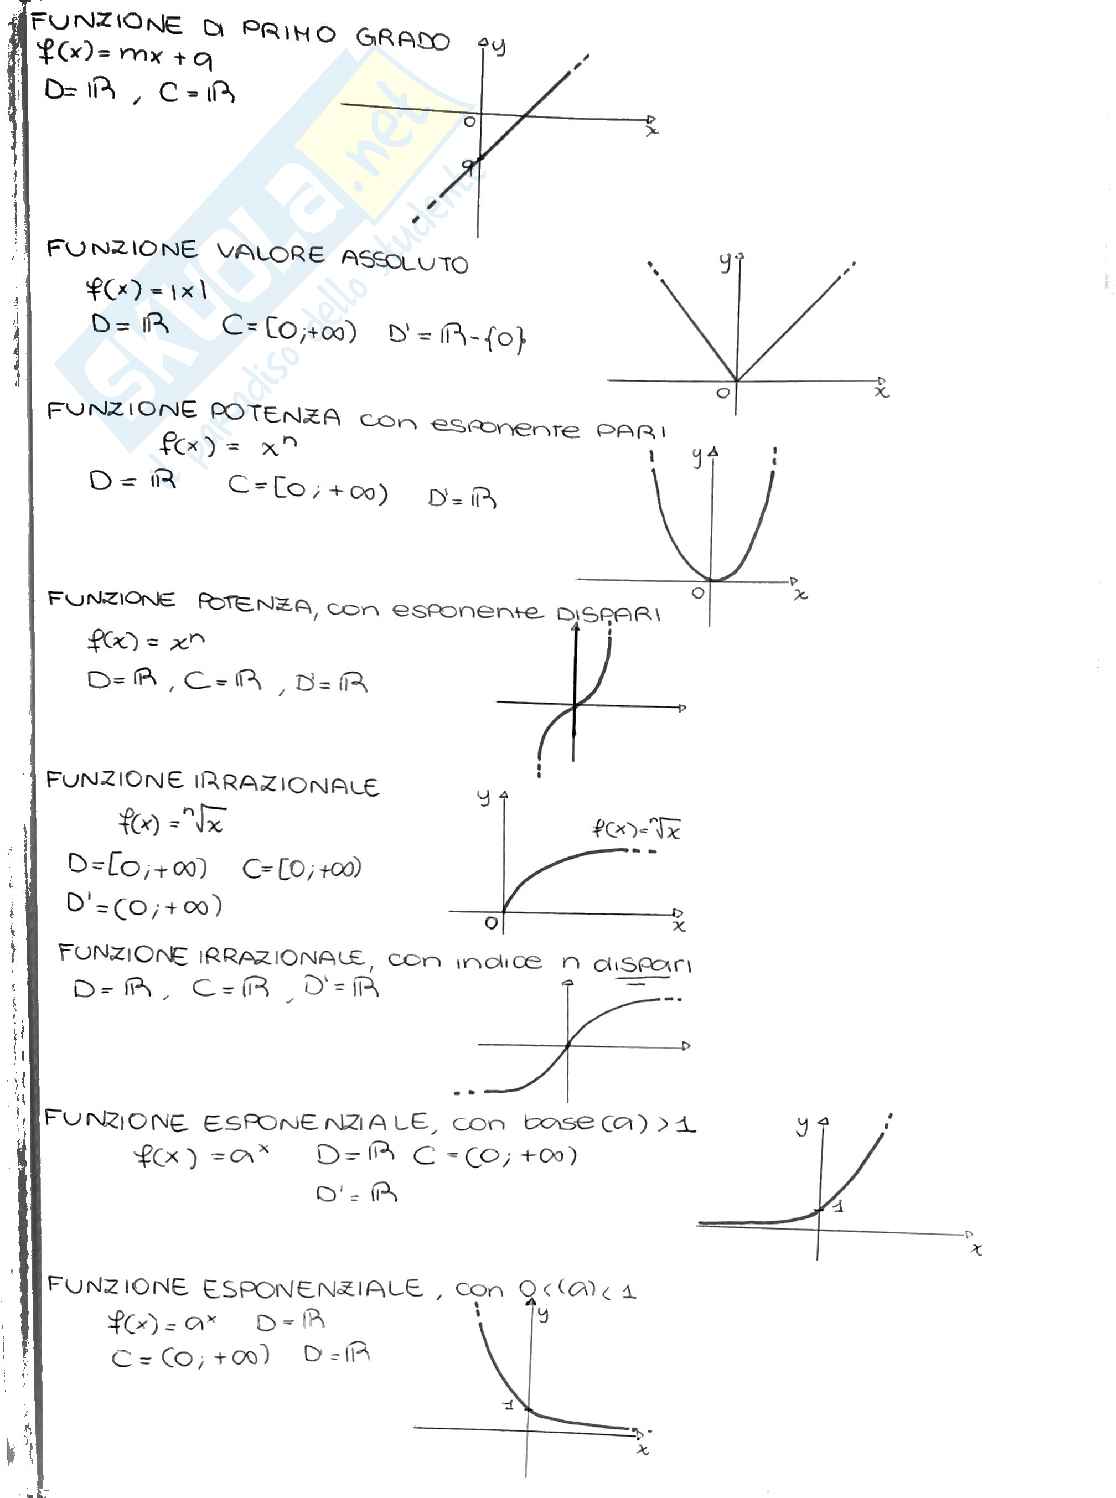 FUNZIONE DI PRIMO GRADO
f(x) = mx + q
D = ℝ , C = ℝ
y
0
x
q
FUNZIONE VALORE ASSOLUTO
f(x) = |x|
D = ℝ C = [0;+∞) D' = ℝ-{0}
y
0
x
FUNZIONE POTENZA con esponente PARI
f(x) = xⁿ
D = ℝ C = [0; +∞) D' = ℝ
y
0
x
FUNZIONE POTENZA, con esponente DISPARI
f(x) = xⁿ
D = ℝ , C = ℝ , D' = ℝ
FUNZIONE IRRAZIONALE
f(x) = ⁿ√x
D = [0;+∞) C = [0;+∞)
D' = (0;+∞)
y
f(x) = ⁿ√x
0
x
FUNZIONE IRRAZIONALE, con indice n dispari
D = ℝ , C = ℝ , D' = ℝ
FUNZIONE ESPONENZIALE, con base (a) > 1
f(x) = aˣ D = ℝ C = (0; +∞)
D' = ℝ
y
1
x
FUNZIONE ESPONENZIALE, con 0 < (a) < 1
f(x) = aˣ D = ℝ
C = (0; +∞) D' = ℝ
y
1
x
SKUOLA.net
il paradiso dello studente